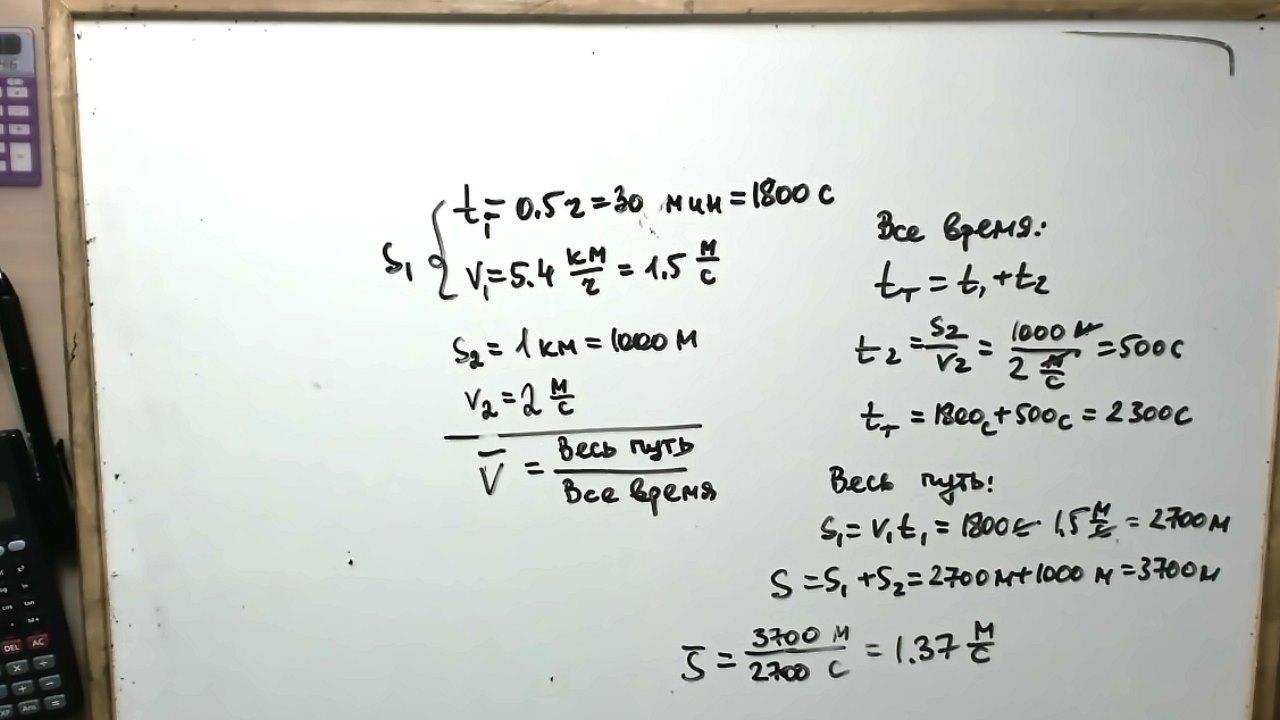 S₁ { t₁ = 0.5 г = 30 мин = 1800 с
V₁ = 5.4 км/г = 1.5 м/с
S₂ = 1 км = 1000 м
V₂ = 2 м/с
V̅ = Весь путь / Все время
Все время:
tт = t₁ + t₂
t₂ = S₂/V₂ = 1000 м / 2 м/с = 500 с
tт = 1800 с + 500 с = 2300 с
Весь путь:
S₁ = V₁t₁ = 1800 с · 1,5 м/с = 2700 м
S = S₁ + S₂ = 2700 м + 1000 м = 3700 м
S̅ = 3700 м / 2700 с = 1.37 м/с